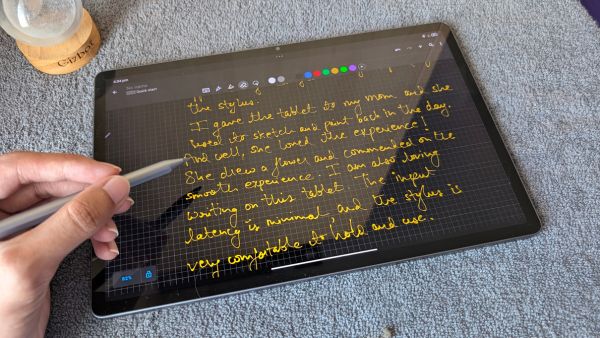 4:34 pm
Quick start
the stylus.
I gave the tablet to my mom and she
used to sketch and paint back in the day.
And well, she loved the experience!
She drew a flower and commended on the
smooth experience. I am also loving
writing on this tablet. The input
latency is minimal, and the stylus is
very comfortable to hold and use.
82%